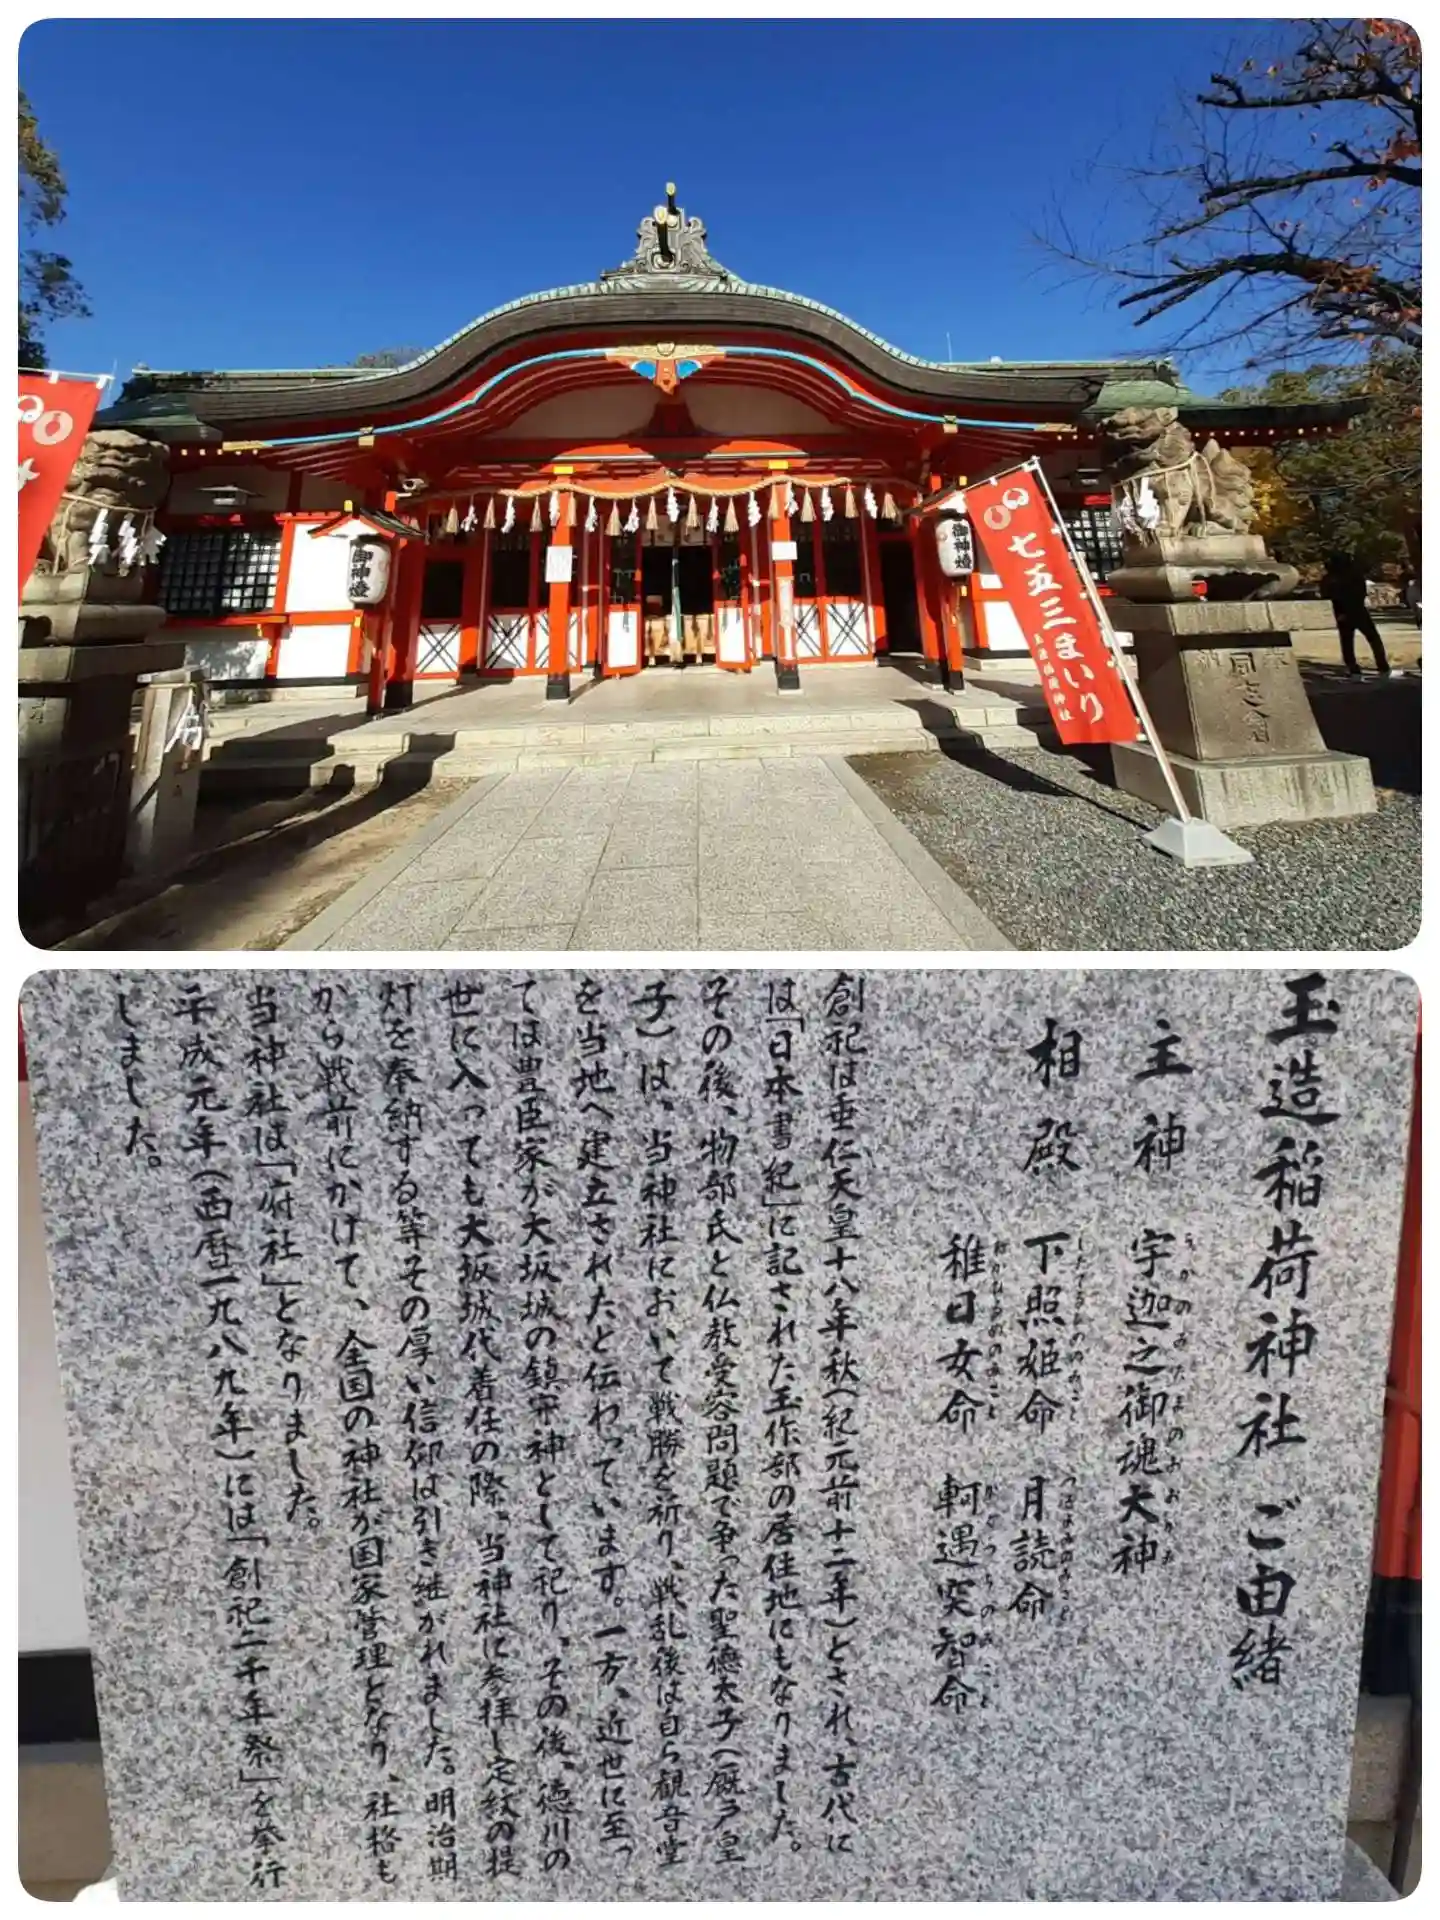 御神燈
御神燈
七五三まいり
玉造稲荷神社
奉
納
同志会
玉造稲荷神社 ご由緒
主神 宇迦之御魂大神
うかのみたまのおおかみ
相殿 下照姫命 月読命
したてるひめのみこと つきよみのみこと
稚日女命 軻遇突智命
わかひるめのみこと かぐつちのみこと
創祀は垂仁天皇十八年秋(紀元前十二年)とされ、古代に
は「日本書紀」に記された玉作部の居住地にもなりました。
その後、物部氏と仏教受容問題で争った聖徳太子(厩戸皇
子)は、当神社において戦勝を祈り、戦乱後は自ら観音堂
を当地へ建立されたと伝わっています。一方、近世に至っ
ては豊臣家が大坂城の鎮守神として祀り、その後、徳川の
世に入っても大坂城代着任の際、当神社に参拝し定紋の提
灯を奉納する等その厚い信仰は引き継がれました。明治期
から戦前にかけて、全国の神社が国家管理となり、社格も
当神社は「府社」となりました。
平成元年(西暦一九八九年)には「創祀二千年祭」を挙行
しました。